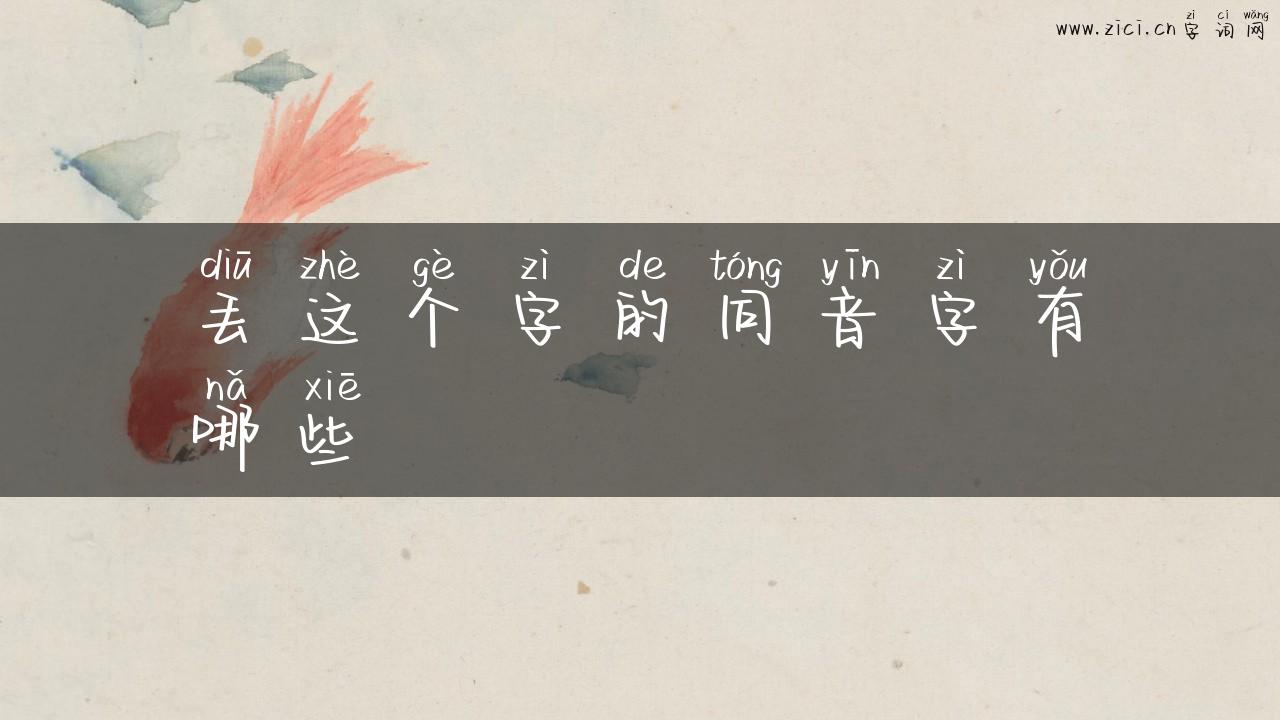 zì cí wǎng
www.zici.cn 字 词 网
diū zhè gè zì de tóng yīn zì yǒu
丢 这 个 字 的 同 音 字 有
nǎ xiē
哪 些